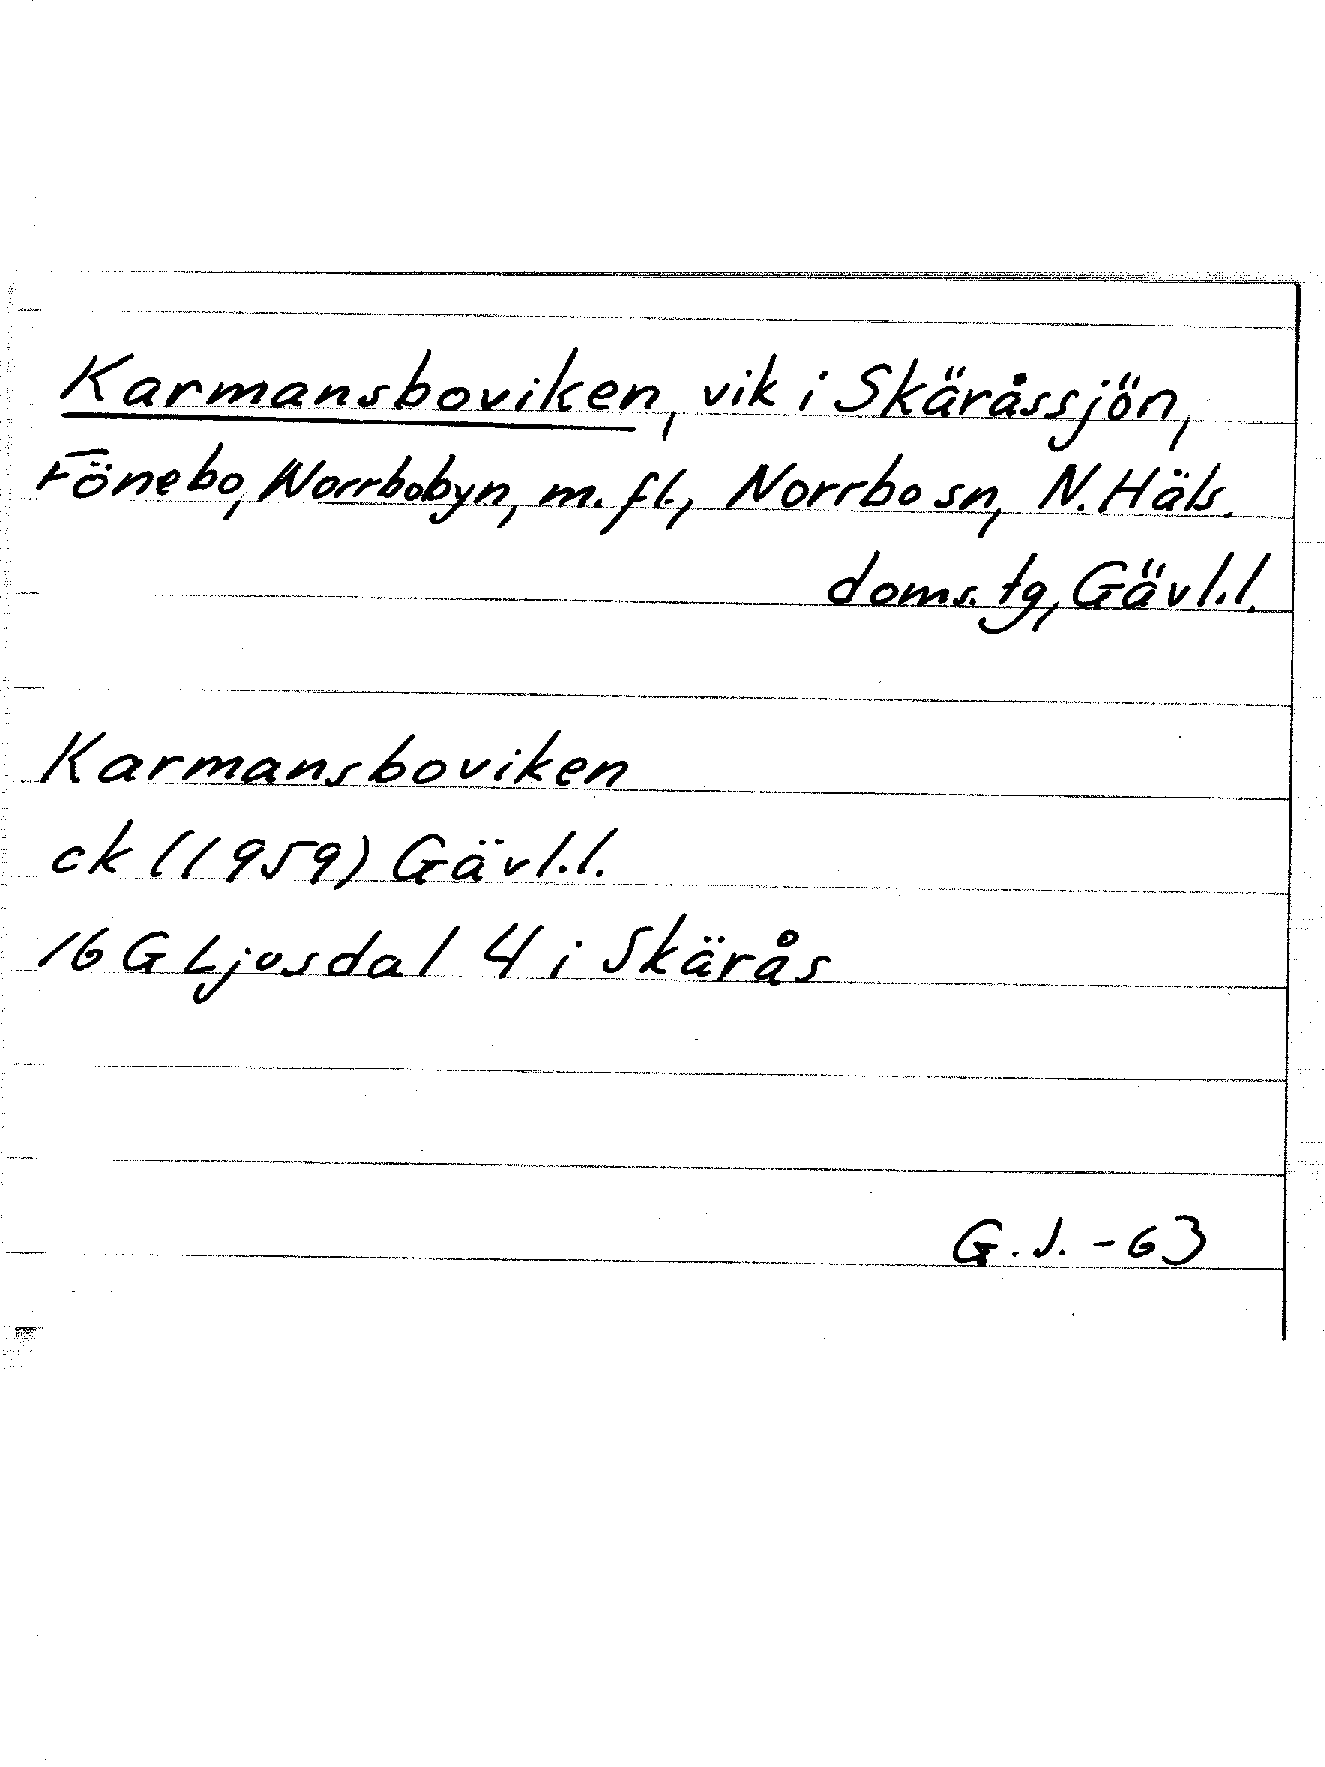 Karmansboviken, vik i Skäråssjön,
Fönebo, Norrbobyn, m.fl., Norrbo sn, N. Häls.
doms. tg, Gävl.l.
Karmansboviken
ck (1959) Gävl.l.
16 G Ljusdal 4 i Skärås
G.J. -63